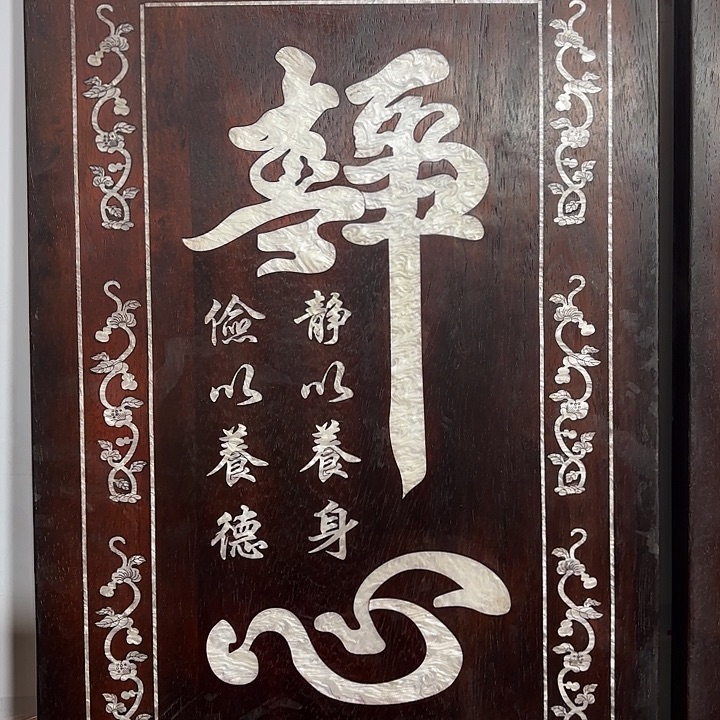 靜心
靜以養身
儉以養德